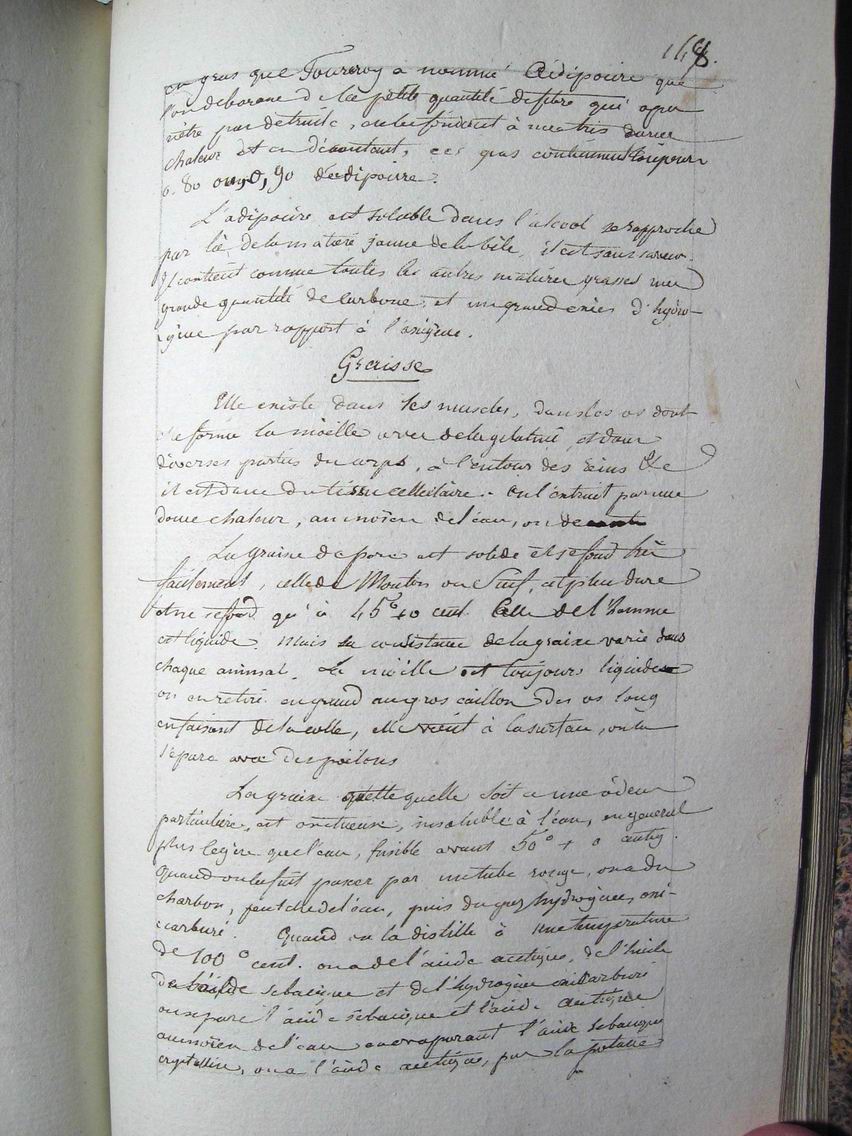 148.
en gras que Fourcroy a nommé Adipocire que
l'on débarasse de la petite quantité de fibre qui a pu
n'être pas détruite, en le fondant à une très douce
chaleur et en décantant, ces gras contiennent toujours
0.80 ou 0,90 d'adipocire.
L'adipocire est soluble dans l'alcool se rapproche
par là de la matière jaune de la bile, il est sans saveur.
Il contient comme toutes les autres matières grasses une
grande quantité de carbone, et un grand excès d'hydro-
gène par rapport à l'oxigène.
Graisse
Elle existe dans les muscles, dans les os dont
se forme la moëlle avec de la gelatine, et dans
diverses parties du corps, à l'entour des reins &c
il est dans du tissu cellulaire. on l'extrait par une
douce chaleur, au moïen de l'eau, ou de
La graisse de porc est solide et se fond très
facilement, celle de Mouton ou Suif, est plus dure
et ne se fond qu'à 45° + 0 cent. Celle de l'homme
est liquide. Mais la consistance de la graisse varie dans
chaque animal. La moëlle est toujours liquide
on en retire en grand au gros caillou des os long
en faisant de la colle, elle vient à la surface, on la
separe avec des poëlons
La graisse quelle quelle soit a une odeur
particulière, est onctueuse, insoluble à l'eau, en general
plus legère que l'eau, fusible avant 50° + 0 centig.
Quand on la fait passer par un tube rouge, on a du
charbon, peut être de l'eau, puis du gaz hydrogène, oxi-
carburé. Quand on la distille à une température
de 100° cent. on a de l'acide acetique, de l'huile
de l'acide sebacique et de l'hydrogène oxicarburé
on separe l'acide sebacique et l'acide acetique
au moïen de l'eau en evaporant l'acide sebacique
crystallise, on a l'acide acetique, par la potasse